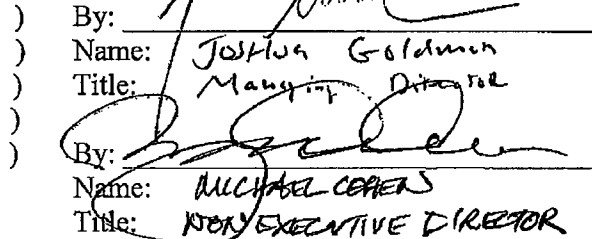 ) By:
) Name: Joshua Goldman
) Title: Managing Director
)
) By:
Name: MICHAEL COHEN
Title: NON EXECUTIVE DIRECTOR